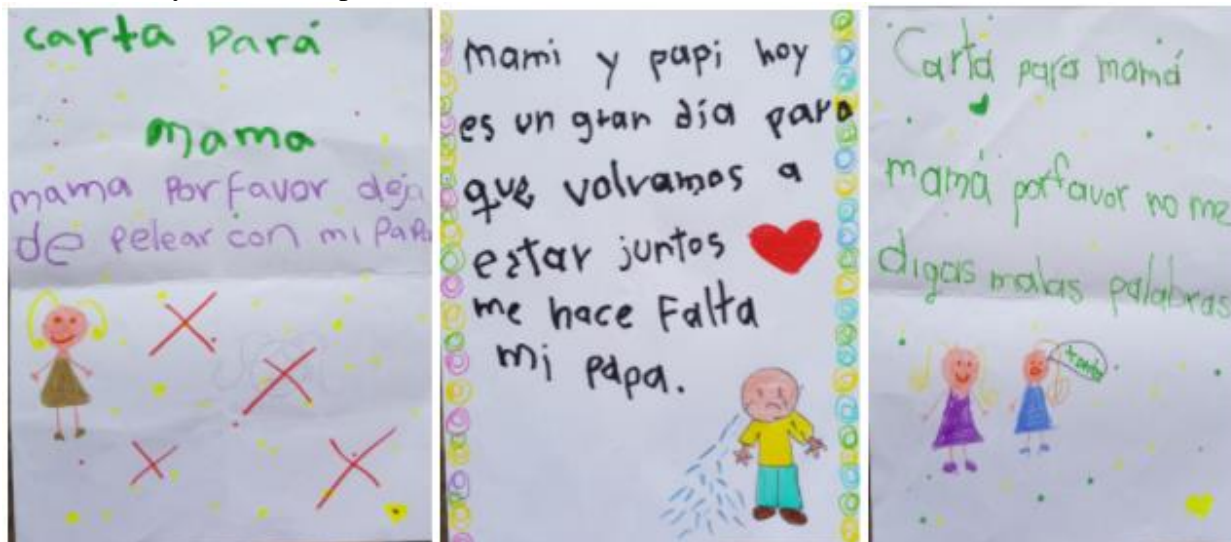 carta pará
mama
mama Porfavor deja
de pelear con mi PaPa
mami y papi hoy
es un gran día para
que volvamos a
estar juntos
me hace Falta
mi papa.
Carta para mamá
mamá porfavor no me
digas malas palabras
tonta